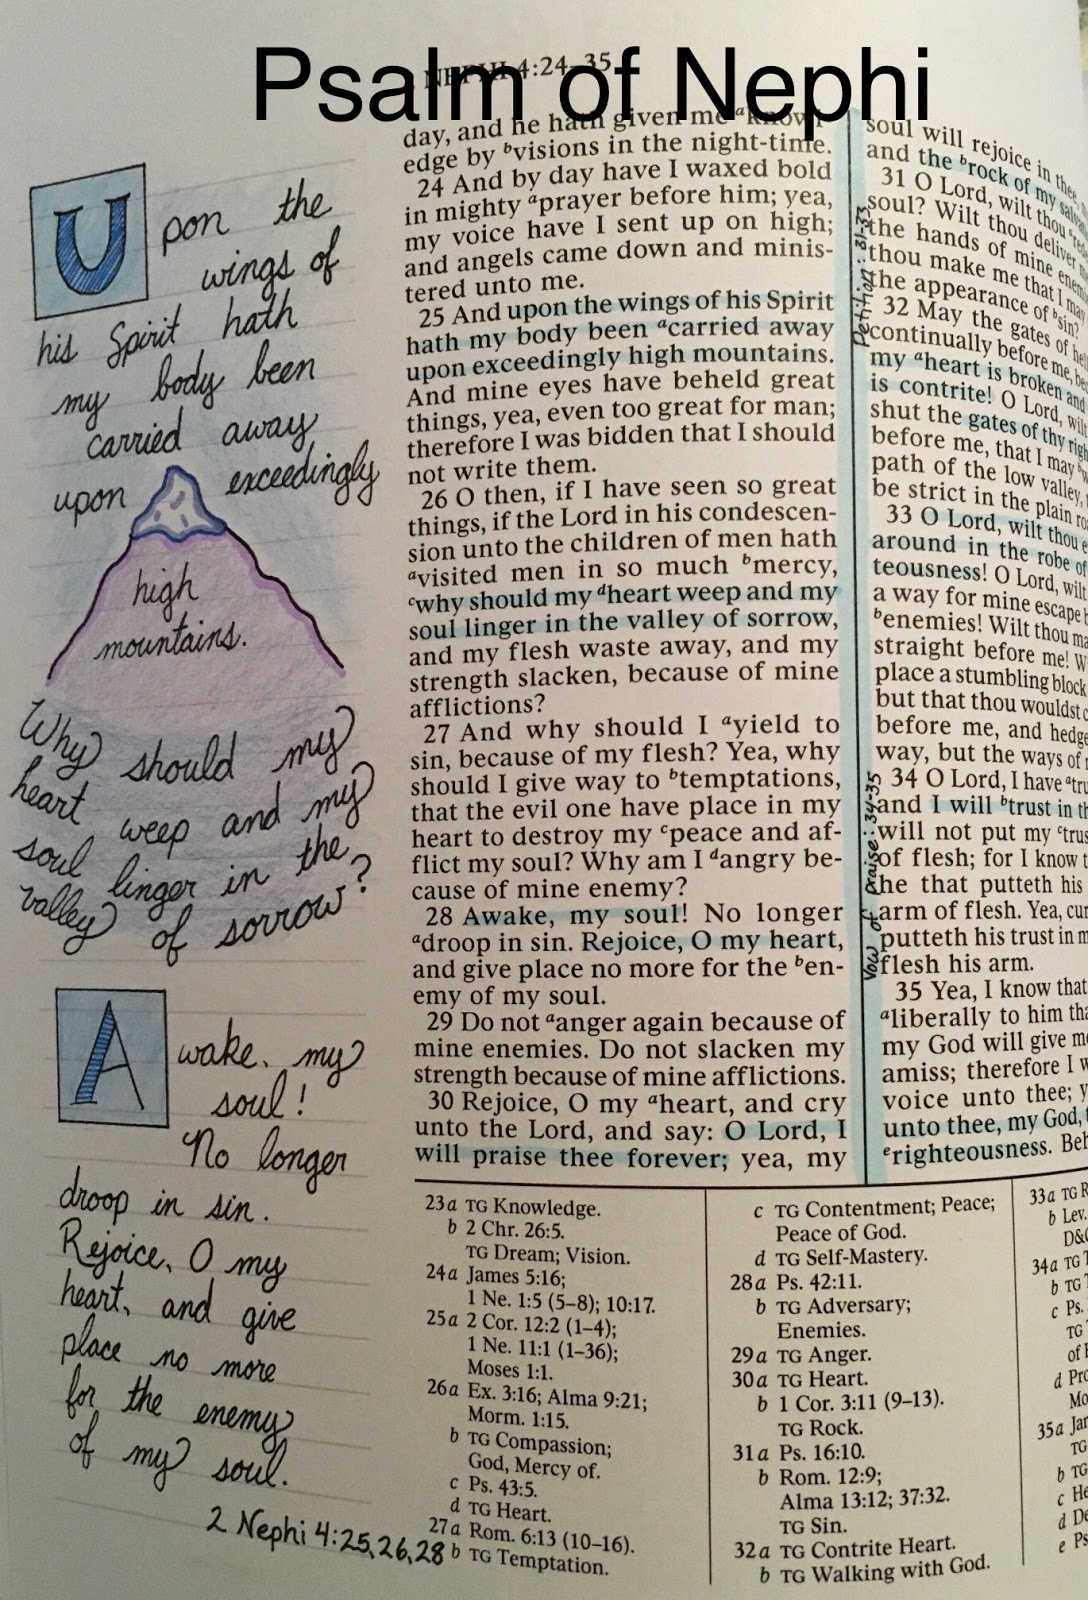 Psalm of Nephi
NEPHI 4:24–35
Upon the
wings of
his Spirit hath
my body been
carried away
upon exceedingly
high
mountains.
Why should my
heart weep and my
soul linger in the
valley of sorrow?
Awake, my
soul!
No longer
droop in sin.
Rejoice, O my
heart, and give
place no more
for the enemy
of my soul.
2 Nephi 4:25,26,28
day, and he hath given me ᵃknowl-
edge by ᵇvisions in the night-time.
24 And by day have I waxed bold
in mighty ᵃprayer before him; yea,
my voice have I sent up on high;
and angels came down and minis-
tered unto me.
25 And upon the wings of his Spirit
hath my body been ᵃcarried away
upon exceedingly high mountains.
And mine eyes have beheld great
things, yea, even too great for man;
therefore I was bidden that I should
not write them.
26 O then, if I have seen so great
things, if the Lord in his condescen-
sion unto the children of men hath
ᵃvisited men in so much ᵇmercy,
ᶜwhy should my ᵈheart weep and my
soul linger in the valley of sorrow,
and my flesh waste away, and my
strength slacken, because of mine
afflictions?
27 And why should I ᵃyield to
sin, because of my flesh? Yea, why
should I give way to ᵇtemptations,
that the evil one have place in my
heart to destroy my ᶜpeace and af-
flict my soul? Why am I ᵈangry be-
cause of mine enemy?
28 Awake, my soul! No longer
ᵃdroop in sin. Rejoice, O my heart,
and give place no more for the ᵇen-
emy of my soul.
29 Do not ᵃanger again because of
mine enemies. Do not slacken my
strength because of mine afflictions.
30 Rejoice, O my ᵃheart, and cry
unto the Lord, and say: O Lord, I
will praise thee forever; yea, my
Petition: 31-33
Vow of Praise: 34-35
soul will rejoice in thee,
and the ᵇrock of my
31 O Lord, wilt thou
soul? Wilt thou deliver
the hands of mine
thou make me that I may
the appearance of ᵇsin?
32 May the gates of
continually before me,
my ᵃheart is broken and
is contrite! O Lord, wilt
shut the gates of thy
before me, that I may
path of the low valley,
be strict in the plain
33 O Lord, wilt thou
around in the robe of
teousness! O Lord, wilt
a way for mine escape
ᵇenemies! Wilt thou
straight before me!
place a stumbling block
but that thou wouldst
before me, and hedge
way, but the ways of
34 O Lord, I have
and I will ᵇtrust in
will not put my
of flesh; for I know
he that putteth his
arm of flesh. Yea,
putteth his trust in
flesh his arm.
35 Yea, I know that
ᵃliberally to him
my God will give
amiss; therefore I
voice unto thee;
unto thee, my God,
ᵉrighteousness.
23a TG Knowledge.
b 2 Chr. 26:5.
TG Dream; Vision.
24a James 5:16;
1 Ne. 1:5 (5–8); 10:17.
25a 2 Cor. 12:2 (1–4);
1 Ne. 11:1 (1–36);
Moses 1:1.
26a Ex. 3:16; Alma 9:21;
Morm. 1:15.
b TG Compassion;
God, Mercy of.
c Ps. 43:5.
d TG Heart.
27a Rom. 6:13 (10–16).
b TG Temptation.
c TG Contentment; Peace;
Peace of God.
d TG Self-Mastery.
28a Ps. 42:11.
b TG Adversary;
Enemies.
29a TG Anger.
30a TG Heart.
b 1 Cor. 3:11 (9–13).
TG Rock.
31a Ps. 16:10.
b Rom. 12:9;
Alma 13:12; 37:32.
TG Sin.
32a TG Contrite Heart.
b TG Walking with God.
33a TG
b Lev.
34a TG
b TG
c Ps.
TG
of
d
35a
TG
b TG
c
d
e Ps